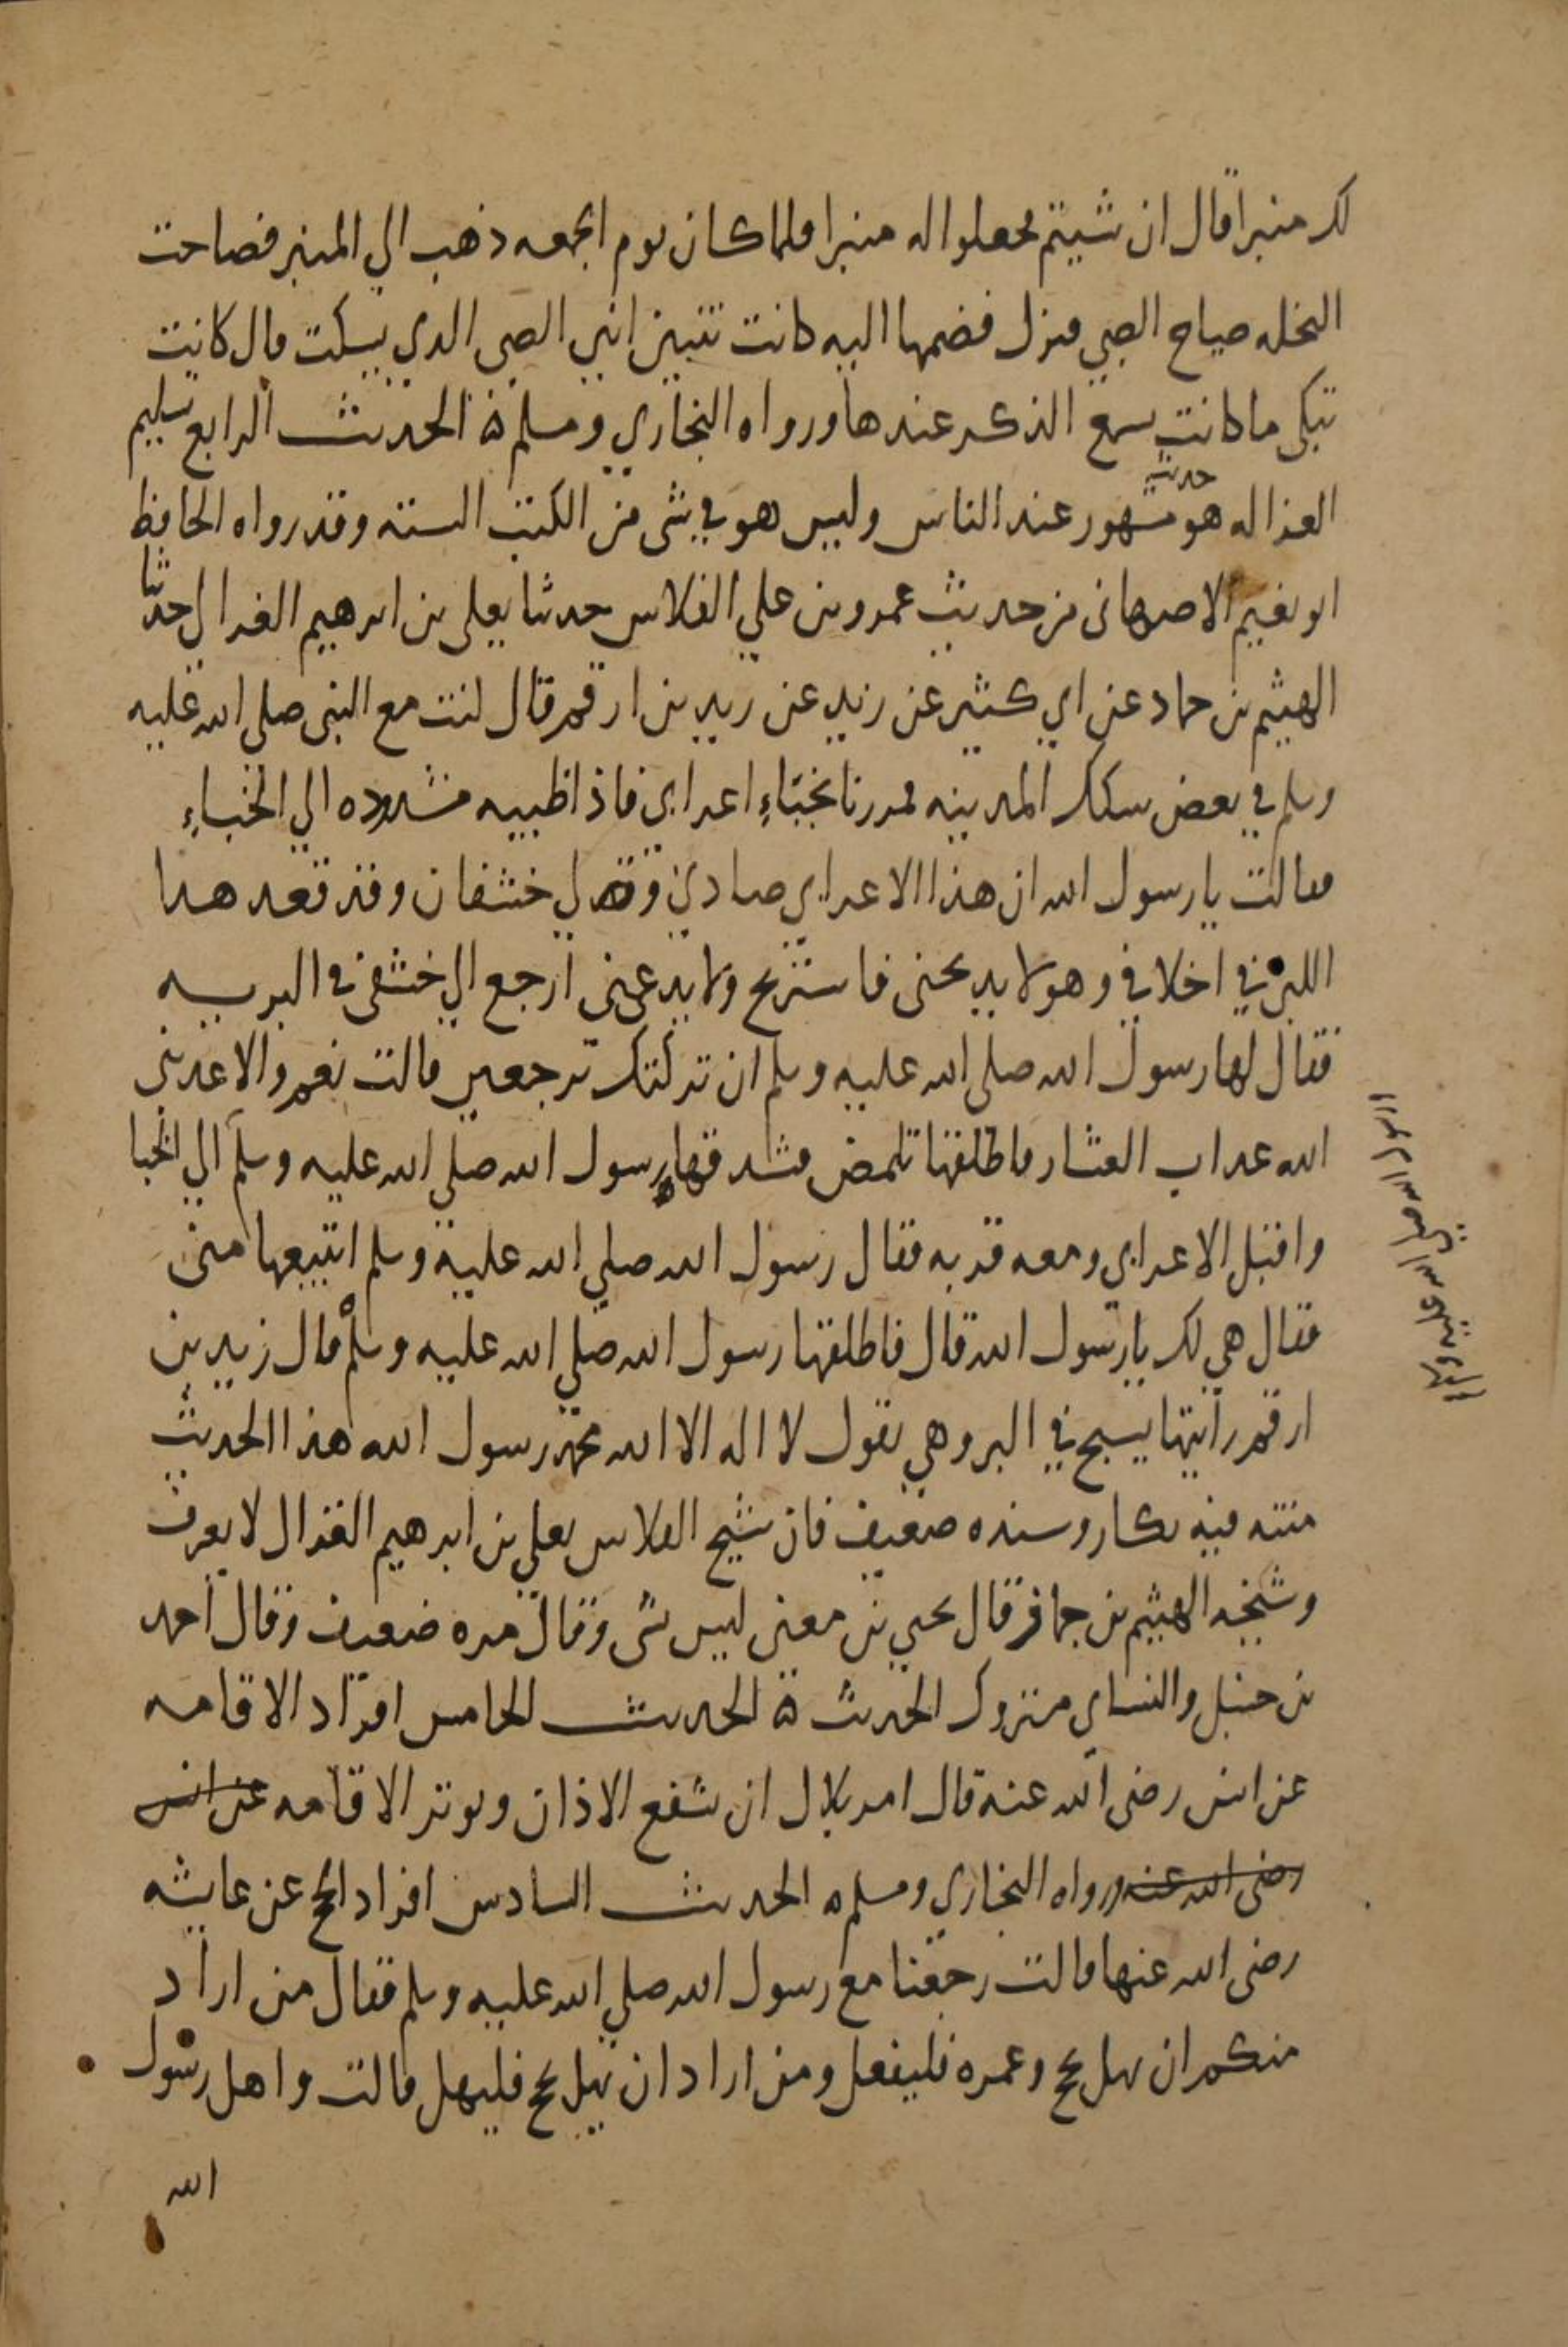 لك منبرا قال ان شيتم فجعلوا له منبرا فلما كان يوم الجمعه ذهب الي المنبر فصاحت
النخله صياح الصبي فنزل فضمها اليه كانت تئن انين الصبي الذي يسكت قال كانت
تبكي ما كانت تسمع الذكر عندها ورواه البخاري ومسلم ه الحديث الرابع تسليم
الغزاله هو حديث مشهور عند الناس وليس هو في شي من الكتب السته وقد رواه الحافظ
ابو نعيم الاصبهاني من حديث عمرو بن علي الفلاس حدثنا يعلي بن ابرهيم الغزال حدثنا
الهيثم بن حماد عن ابي كثير عن زيد بن ارقم قال كنت مع النبي صلي الله عليه
وسلم في بعض سكك المدينه فمررنا بخباء اعرابي فاذا ظبيه مشدوده الي الخباء
فقالت يا رسول الله ان هذا الاعرابي صادني ولي خشفان وقد تعقد هذا
اللبن في اخلافي وهو لا يذبحني فاستريح ولا يدعني ارجع الي خشفي في البريه
فقال لها رسول الله صلي الله عليه وسلم ان تركتك ترجعين قالت نعم والا عذبني
الله عذاب العشار فاطلقها تلمض فشدها رسول الله صلي الله عليه وسلم الي الخبا
واقبل الاعرابي ومعه قربه فقال رسول الله صلي الله عليه وسلم اتبيعها مني
فقال هي لك يا رسول الله قال فاطلقها رسول الله صلي الله عليه وسلم قال زيد بن
ارقم رايتها يسبح في البر وهي تقول لا اله الا الله محمد رسول الله هذا الحديث
متنه فيه نكار وسنده ضعيف فان شيخ الفلاس يعلي بن ابرهيم الغزال لا يعرف
وشيخه الهيثم بن جماز قال يحيي بن معين ليس بشي وقال مره ضعيف وقال احمد
بن حنبل والنساي متروك الحديث ه الحديث الخامس افراد الاقامه
عن انس رضي الله عنه قال امر بلال ان يشفع الاذان ويوتر الاقامه عن انس
رضي الله عنه ورواه البخاري ومسلم ه الحديث السادس افراد الحج عن عايشه
رضي الله عنها قالت رجعنا مع رسول الله صلي الله عليه وسلم فقال من اراد
منكم ان يهل بحج وعمره فليفعل ومن اراد ان يهل بحج فليهل قالت واهل رسول
الله